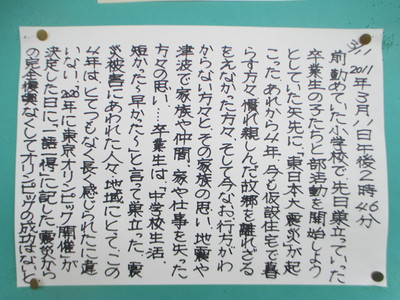 3/11 2011年3月11日午後2時46分
前勤めていた小学校で、先日巣立っていった
卒業生の子たちと部活動を開始しよう
としていた矢先に、「東日本大震災」が起
こった。あれから4年、今も仮設住宅で暮
らす方々、慣れ親しんだ故郷を離れざる
をえなかった方々、そして今なお行方がわ
からない方々とその家族の思い、地震や
津波で家族や仲間、家や仕事を失った
方々の思い…。卒業生は、「中学校生活、
短かった～早かった～」と言って巣立った、震
災被害にあわれた人々、地域にとって、この
4年は、とてつもなく長く感じられたに違
いない。「2020年に東京オリンピック開催」が
決定した日に、「一語一得」に記した「震災から
の完全復興なくしてオリンピックの成功はない」と